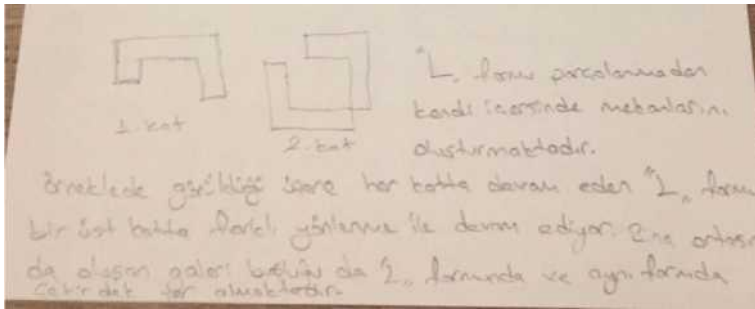 "L" formu parçalanmadan
kendi içerisinde mekanlarını
oluşturmaktadır.
1. kat
2. kat
Örneklerde görüldüğü üzere her katta devam eden "L" formu
bir üst katta farklı yönlenme ile devam ediyor. ortasın
da oluşan galeri boşluğu da "L" formunda ve aynı formda
yer almaktadır.